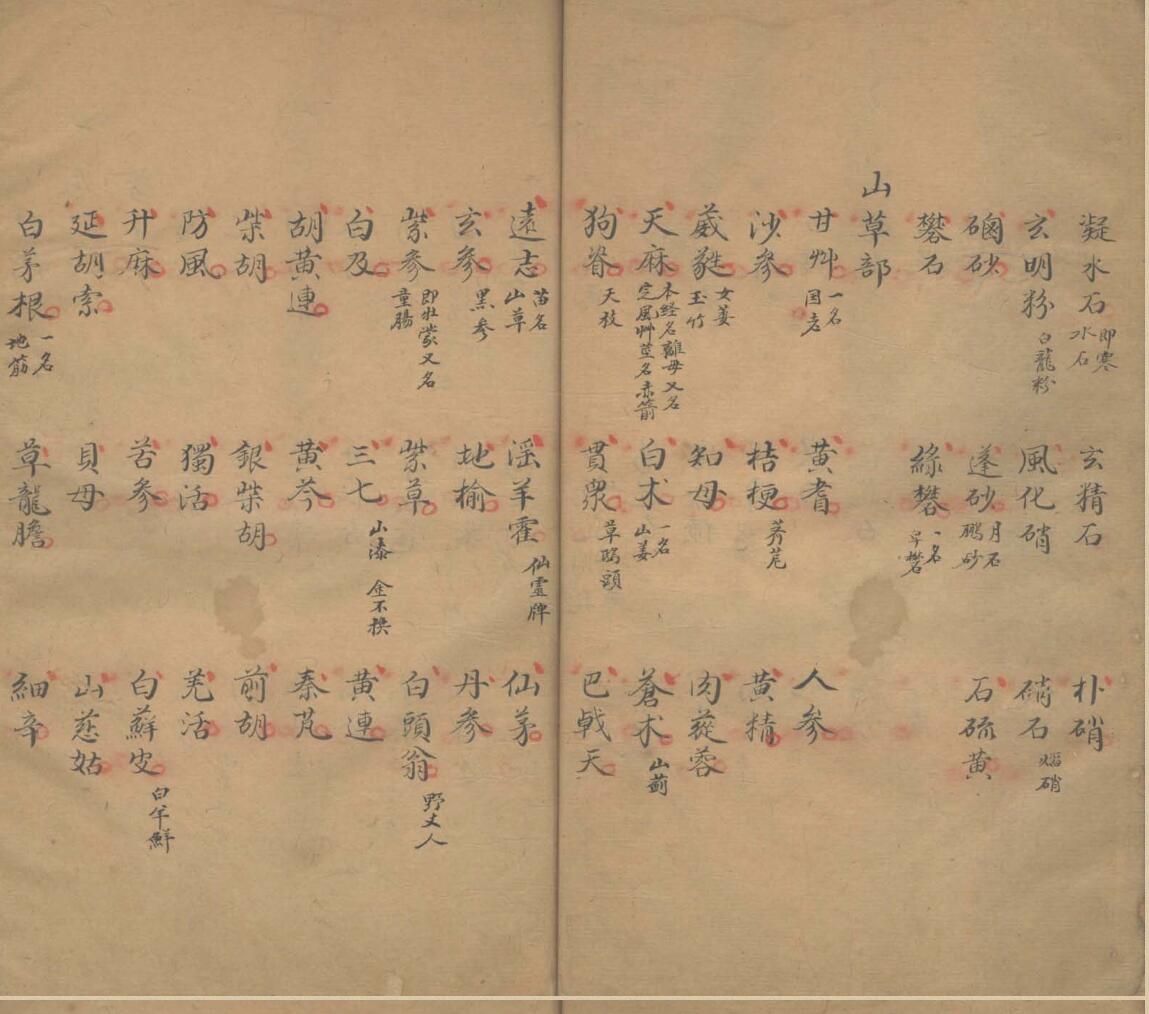 凝水石 即寒水石 玄精石 朴硝
玄明粉 白龍粉 風化硝 硝石 焰硝
硇砂 蓬砂 月石 鵬砂 石硫黄
礬石 綠礬 一名皁礬
山草部
甘艸 一名国老 黄耆 人參
沙參 桔梗 荠苨 黄精
葳蕤 女萎 玉竹 知母 肉蓯蓉
天麻 本经名離母又名定風艸莖名赤箭 白术 一名山姜 蒼术 山薊
狗脊 貫衆 草鴟頭 巴戟天
遠志 苗名山草 淫羊霍 仙靈牌 仙茅
玄參 黑參 地榆 丹參
紫參 即牡蒙又名童腸 紫草 白頭翁 野丈人
白及 三七 山漆 金不換 黄連
胡黄連 黄芩 秦艽
柴胡 銀柴胡 前胡
防風 獨活 羌活
升麻 苦參 白蘚皮 白羊鮮
延胡索 貝母 山慈姑
白茅根 一名地筋 草龍膽 細辛